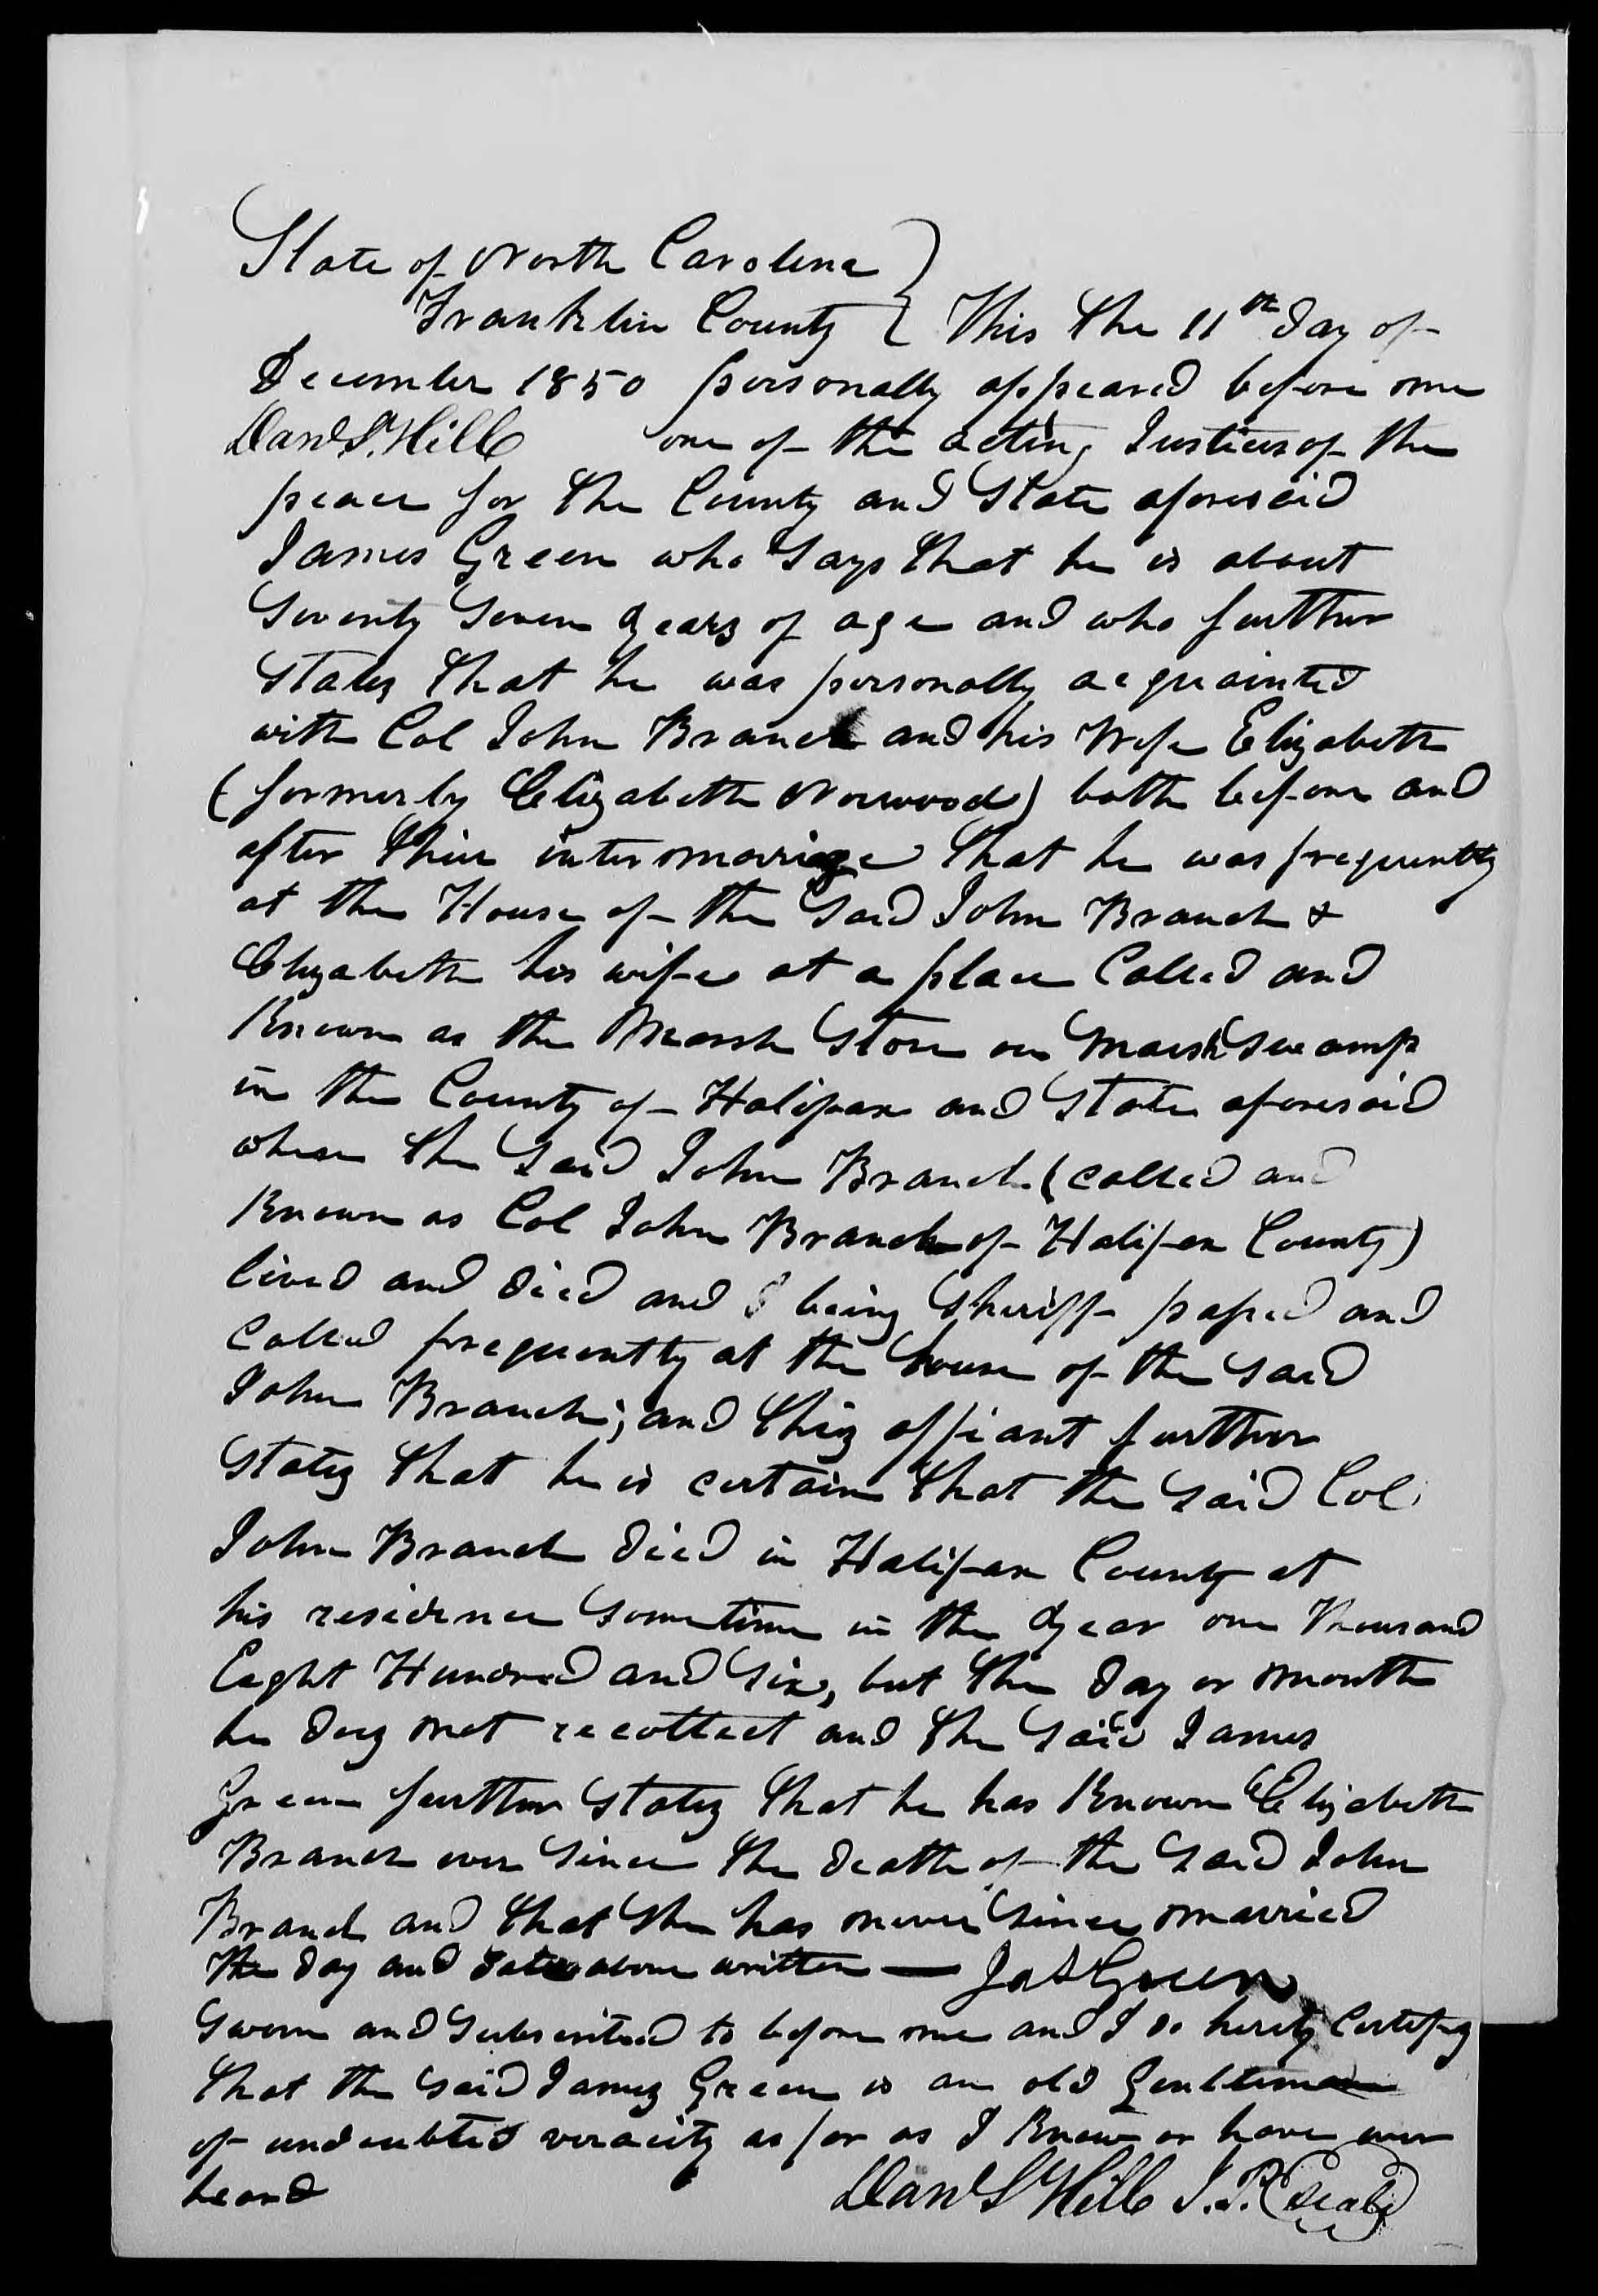 State of North Carolina }
Franklin County } This the 11th day of
December 1850 personally appeared before me
Danl S. Hill one of the acting Justices of the
peace for the County and State aforesaid
James Green who Says that he is about
Seventy Seven years of age and who further
States that he was personally acquainted
with Col John Branch and his Wife Elizabeth
(formerly Elizabeth Norwood) both before and
after their intermarriage that he was frequently
at the House of the Said John Branch &
Elizabeth his wife at a place Called and
Known as the Marsh Store on Marsh Swamp
in the County of Halifax and State aforesaid
where the Said John Branch (called and
Known as Col John Branch of Halifax County)
lived and died and I being Sheriff passed and
Called frequently at the house of the Said
John Branch; and this affiant further
States that he is certain that the Said Col
John Branch died in Halifax County at
his residence Sometime in the year one Thousand
Eight Hundred and Six, but the day or month
he does not recollect and the Said James
Green further States that he has Known Elizabeth
Branch ever Since the death of the Said John
Branch and that She has never Since married
The day and date above written — Jas Green
Sworn and Subscribed to before me and I do hereby Certify
that the Said James Green is an old Gentleman
of undoubted veracity as far as I Know or have ever
heard Danl S Hill J.P. (Seal)